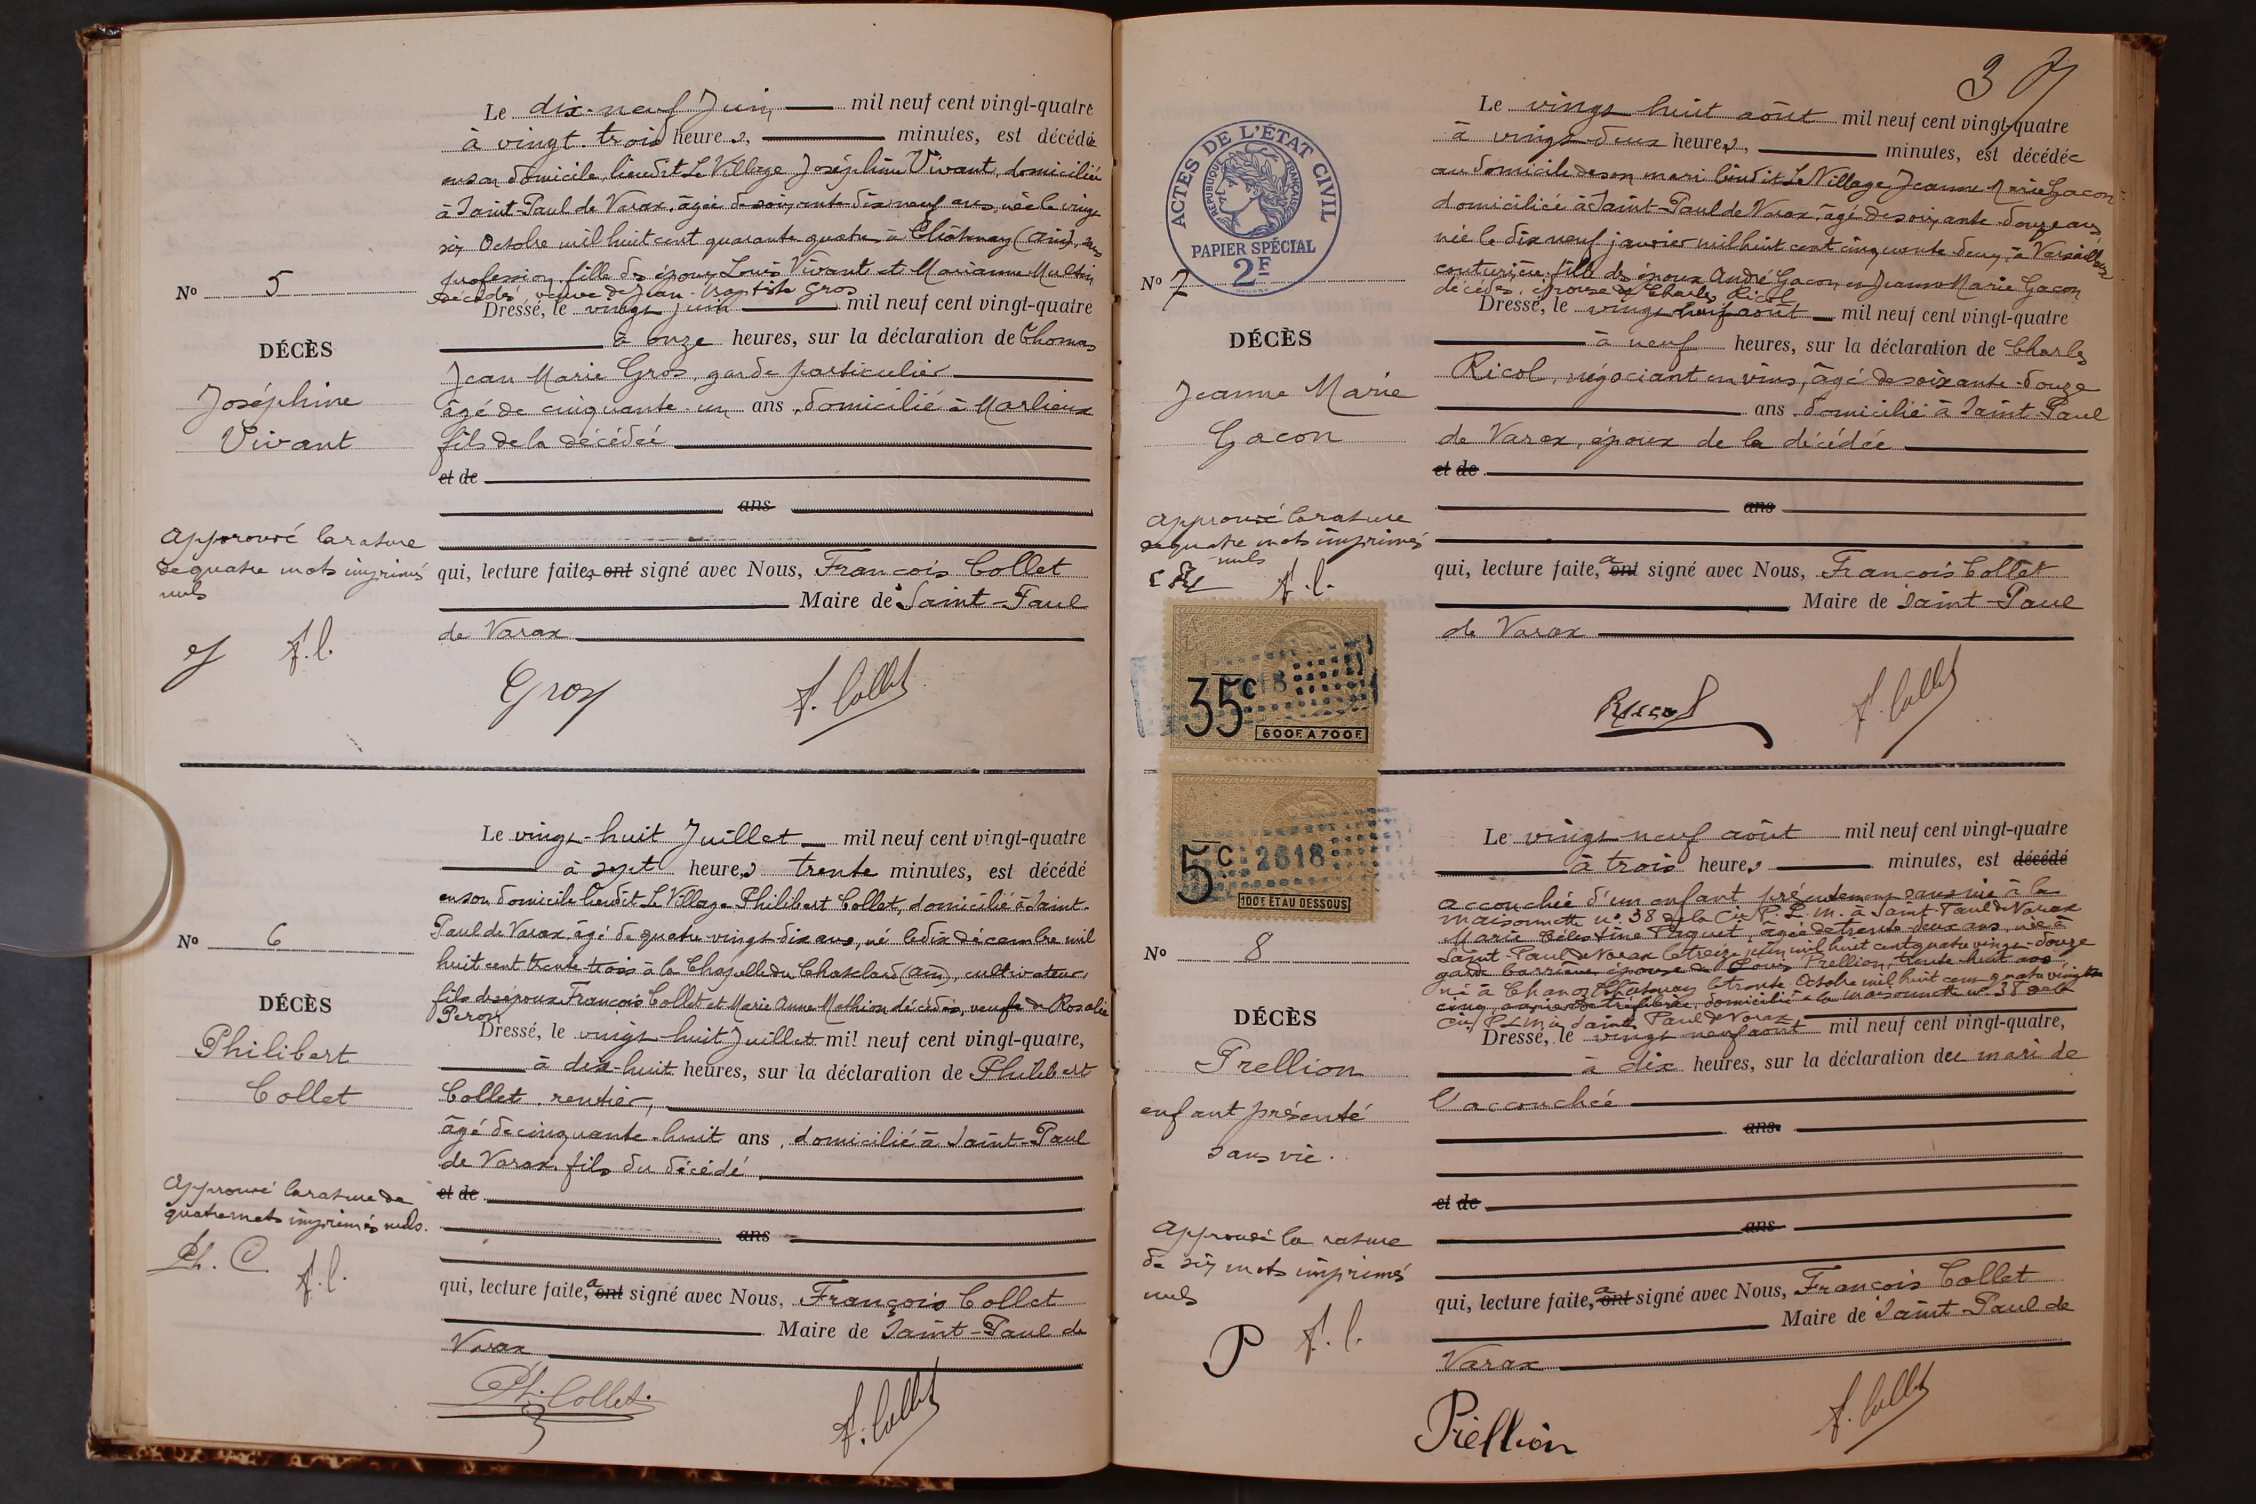 Le dix-neuf Juin mil neuf cent vingt-quatre
à vingt-trois heures, minutes, est décédée
en son domicile, lieudit Le Village Joséphine Vivant, domiciliée
à Saint-Paul de Varax, âgée de soixante-dix neuf ans, née le vingt
six Octobre mil huit cent quarante quatre à Châtenay (Ain), sans
profession, fille des époux Louis Vivant et Marianne
décédés, veuve de Jean-Baptiste Gros
No 5
Dressé, le vingt juin mil neuf cent vingt-quatre
à onze heures, sur la déclaration de Thomas
DÉCÈS
Jean Marie Gros, garde particulier
Joséphine
âgé de cinquante un ans, domicilié à Marlieux
Vivant
fils de la décédée
et de
ans
Approuvé la rature
de quatre mots imprimés
nuls
qui, lecture faite, ont signé avec Nous, François Collet
Maire de Saint-Paul
de Varax
f.C.
Gros
F. Collet
Le vingt-huit Juillet mil neuf cent vingt-quatre
à sept heures trente minutes, est décédé
en son domicile lieudit Le Village Philibert Collet, domicilié à Saint-
Paul de Varax, âgé de quatre-vingt-dix ans, né le dix décembre mil
huit cent trente-trois à la Chapelle du Chatelard (Ain), cultivateur,
fils des époux François Collet et Marie Anne Mathion décédés, veuf de Rosalie
Peron
No 6
Dressé, le vingt-huit Juillet mil neuf cent vingt-quatre,
à dix-huit heures, sur la déclaration de Philibert
DÉCÈS
Collet, rentier,
Philibert
Collet
âgé de cinquante-huit ans, domicilié à Saint-Paul
de Varax, fils du décédé
et de
ans
Approuvé la rature de
quatre mots imprimés nuls.
Ph. C. f.C.
qui, lecture faite, a ont signé avec Nous, François Collet
Maire de Saint-Paul de
Varax
Ph. Collet
F. Collet
3
Le vingt huit août mil neuf cent vingt-quatre
à vingt-deux heures, minutes, est décédée
au domicile de son mari lieudit Le Village, Jeanne Marie Gacon
domiciliée à Saint-Paul de Varax, âgé de soixante-douze ans
née le dix neuf janvier mil huit cent cinquante deux, à Versailleux
couturière, fille des époux André Gacon et Jeanne Marie Gacon
décédés, épouse de Charles Ricol
ACTES DE L'ÉTAT CIVIL
RÉPUBLIQUE FRANÇAISE
PAPIER SPÉCIAL
2F
No 7
Dressé, le vingt neuf août mil neuf cent vingt-quatre
à neuf heures, sur la déclaration de Charles
DÉCÈS
Ricol, négociant en vins, âgé de soixante-douze
Jeanne Marie
ans domicilié à Saint-Paul
Gacon
de Varax, époux de la décédée
et de
ans
Approuvé la rature
de quatre mots imprimés
nuls
f.C.
qui, lecture faite, a ont signé avec Nous, François Collet
Maire de Saint-Paul
de Varax
Ricol
F. Collet
35c
600F. A 700F.
5c
2618
100F. ET AU DESSOUS
Le vingt neuf août mil neuf cent vingt-quatre
à trois heures minutes, est décédé
accouchée d'un enfant présentement sans vie à la
maisonnette no 38 de la Cie P. L. M. à Saint-Paul de Varax
Marie Célestine Puquet, âgée de trente-deux ans, née à
Saint-Paul de Varax le treize juin mil huit cent quatre vingt-douze
garde barrière, épouse de Louis Prellion, trente-huit ans
né à Chanoz Châtenay le trente Octobre mil huit cent quatre vingt
cinq, domicilié à la maisonnette no 38 de la
Cie P L M à Saint Paul de Varax
No 8
Dressé, le vingt neuf août mil neuf cent vingt-quatre,
à dix heures, sur la déclaration du mari de
DÉCÈS
l'accouchée
Prellion
enfant présenté
sans vie.
ans
et de
ans
Approuvé la rature
de six mots imprimés
nuls
P f.C.
qui, lecture faite, a ont signé avec Nous, François Collet
Maire de Saint-Paul de
Varax
Prellion
F. Collet